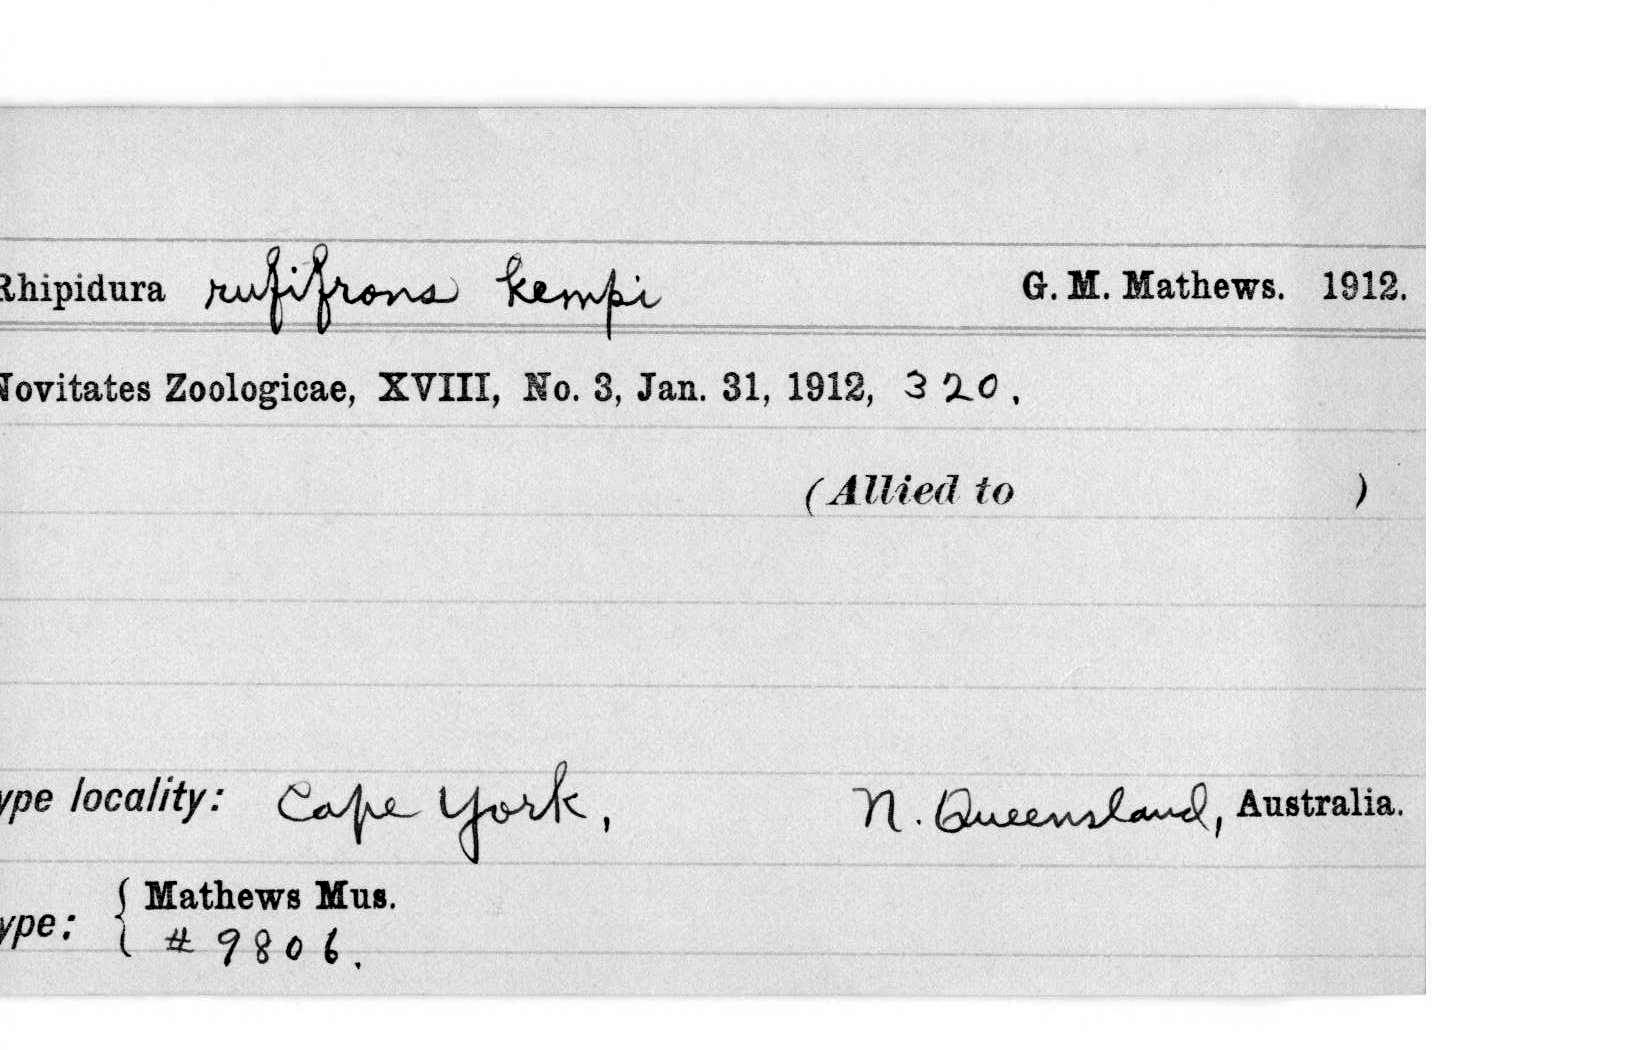 Rhipidura rufifrons kempi G. M. Mathews. 1912.
Novitates Zoologicae, XVIII, No. 3, Jan. 31, 1912, 320.
(Allied to )
ype locality: Cape York, N. Queensland, Australia.
ype: { Mathews Mus.
# 9806.